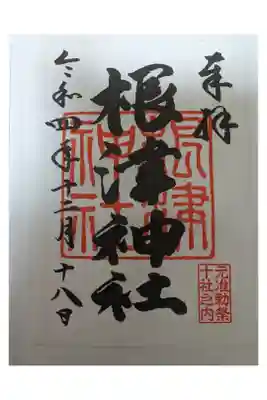 奉拝
根津神社
令和四年十二月十八日
根津
神社
元准勅祭
十社之内